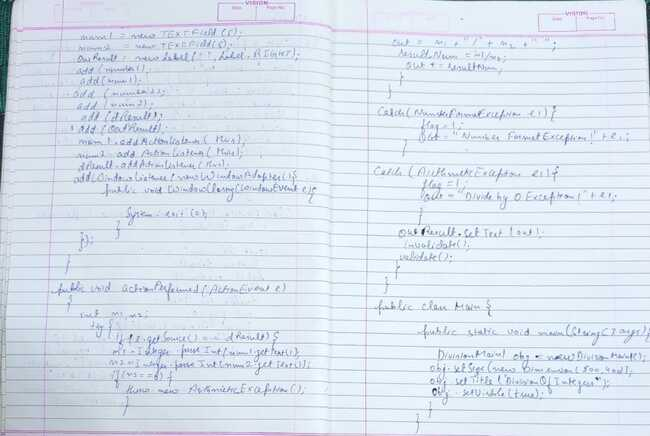 VISION
Date: Page No:
num1 = new TEXTField(5);
num2 = new TEXTField(5);
OutResult = new Label(" ", Label.RIGHT);
add(number1);
add(num1);
add(number2);
add(num2);
add(dResult);
add(OutResult);
num1.addActionListener(this);
num2.addActionListener(this);
dResult.addActionListener(this);
add(WindowListener(newWindowAdapter(){
public void WindowClosing(WindowEvent e){
System.exit(0);
}
});
}
public void actionPerformed(ActionEvent e)
{
int n1, n2;
try {
if(e.getSource() == dResult) {
n1 = Integer.parseInt(num1.getText());
n2 = Integer.parseInt(num2.getText());
if(n2 == 0) {
throw new ArithmeticException();
}
VISION
Date: Page No:
out = n1 + "/" + n2 + " ";
resultNum = n1/n2;
out + = resultNum;
}
}
Catch(NumberFormatException e1){
flag = 1;
out = "Number FormatException!" + e1;
}
Catch(ArithmeticException e1){
flag = 1;
out = "Divide by 0 Exception!" + e1;
}
outResult.setText(out);
invalidate();
validate();
}
}
public class Main {
public static void main(String[] args){
DivisionMain1 obj = new DivisionMain1();
obj.setSize(new Dimension(500,400));
obj.setTitle("Division Of Integers");
obj.setVisible(true);
}
}